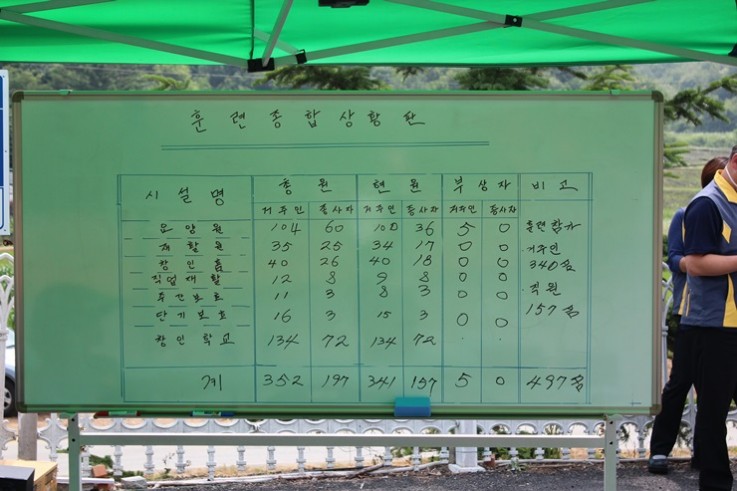 훈련종합상황판
시설명 총원 현원 부상자 비고
거주인 종사자 거주인 종사자 거주인 종사자
요양원 104 60 100 36 5 0 훈련참가
재활원 35 25 34 17 0 0 거주인
장인홈 40 26 40 18 0 0 340名
직업재활 12 8 9 8 0 0 직원
주간보호 11 3 8 3 0 0 157名
단기보호 16 3 15 3 0 0
장인학교 134 72 134 72 . .
계 352 197 341 157 5 0 497名